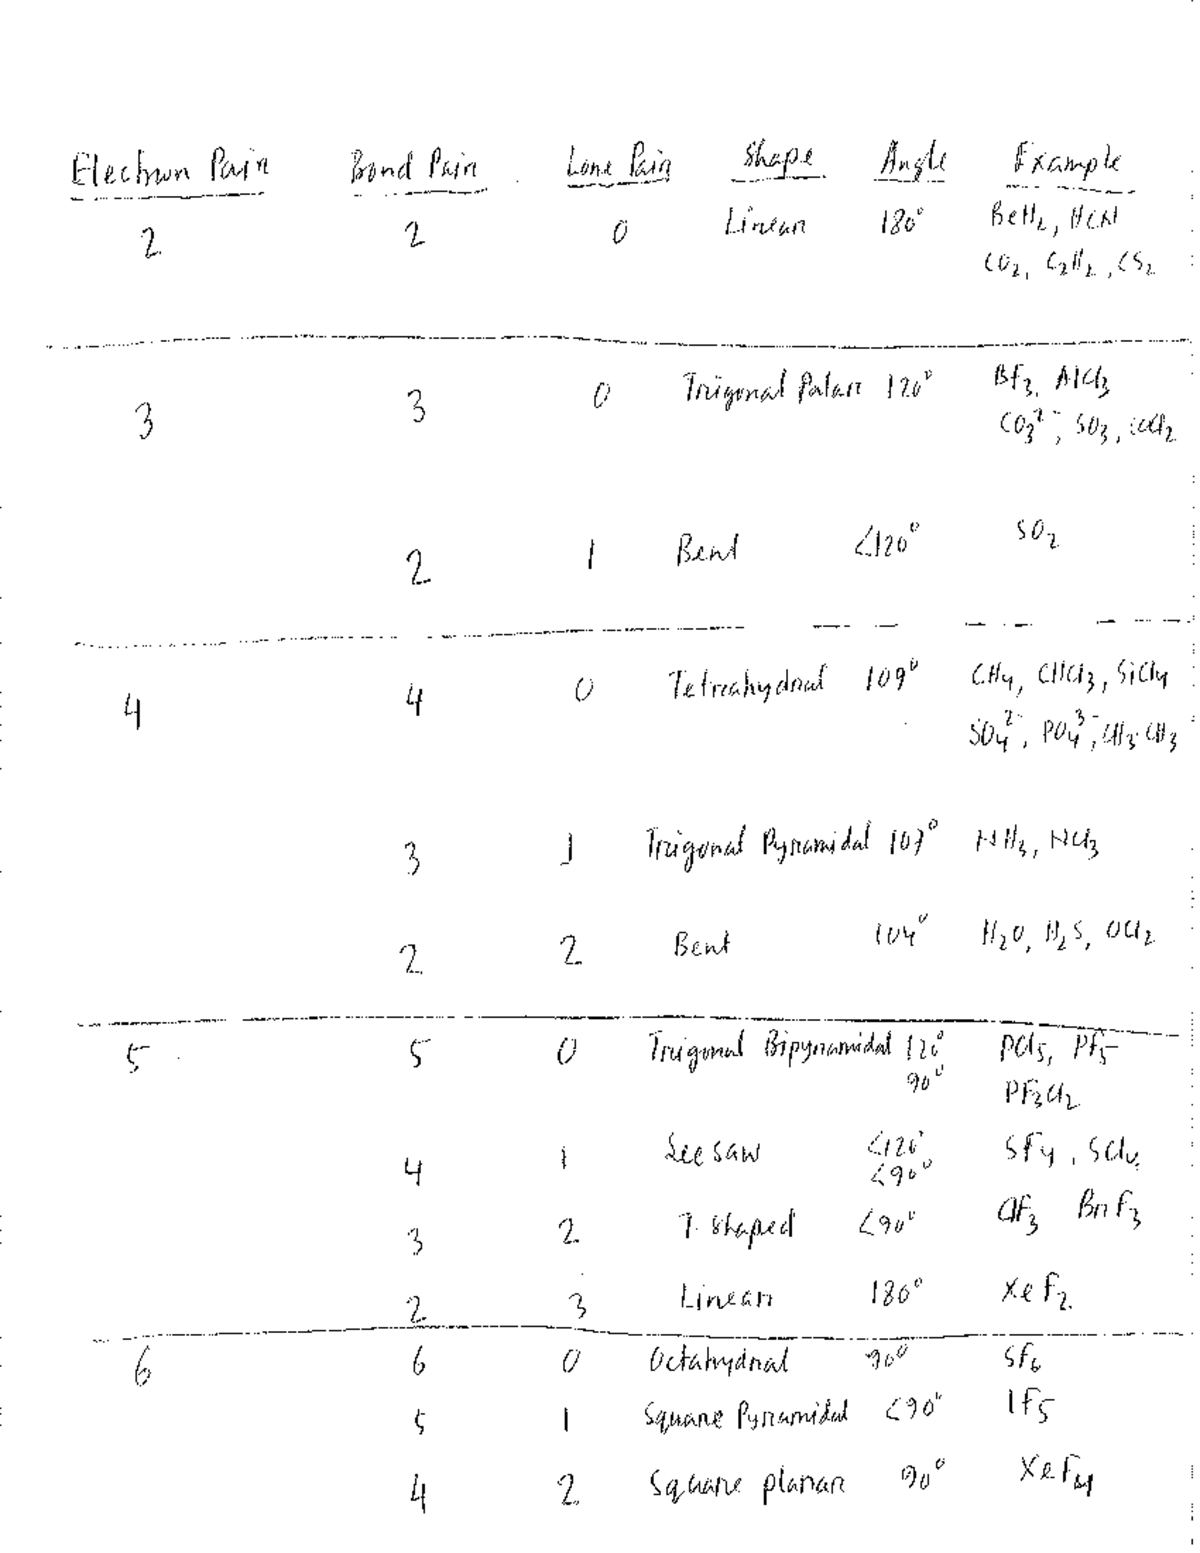 Electron Pair Bond Pair Lone Pair Shape Angle Example
2 2 0 Linear 180° BeH₂, HCN
CO₂, C₂H₂, CS₂
3 3 0 Trigonal Palar 120° BF₃, AlCl₃
CO₃²⁻, SO₃, COCl₂
2 1 Bent <120° SO₂
4 4 0 Tetrahydral 109° CH₄, CHCl₃, SiCl₄
SO₄²⁻, PO₄³⁻, CH₃-CH₃
3 1 Trigonal Pyramidal 107° NH₃, NCl₃
2 2 Bent 104° H₂O, H₂S, OCl₂
5 5 0 Trigonal Bipyramidal 120° PCl₅, PF₅
90° PF₃Cl₂
4 1 See saw <120° SF₄, SCl₄
<90°
3 2 T. shaped <90° ClF₃ BrF₃
2 3 Linear 180° XeF₂.
6 6 0 Octahydral 90° SF₆
5 1 Square Pyramidal <90° IF₅
4 2 Square planar 90° XeF₄